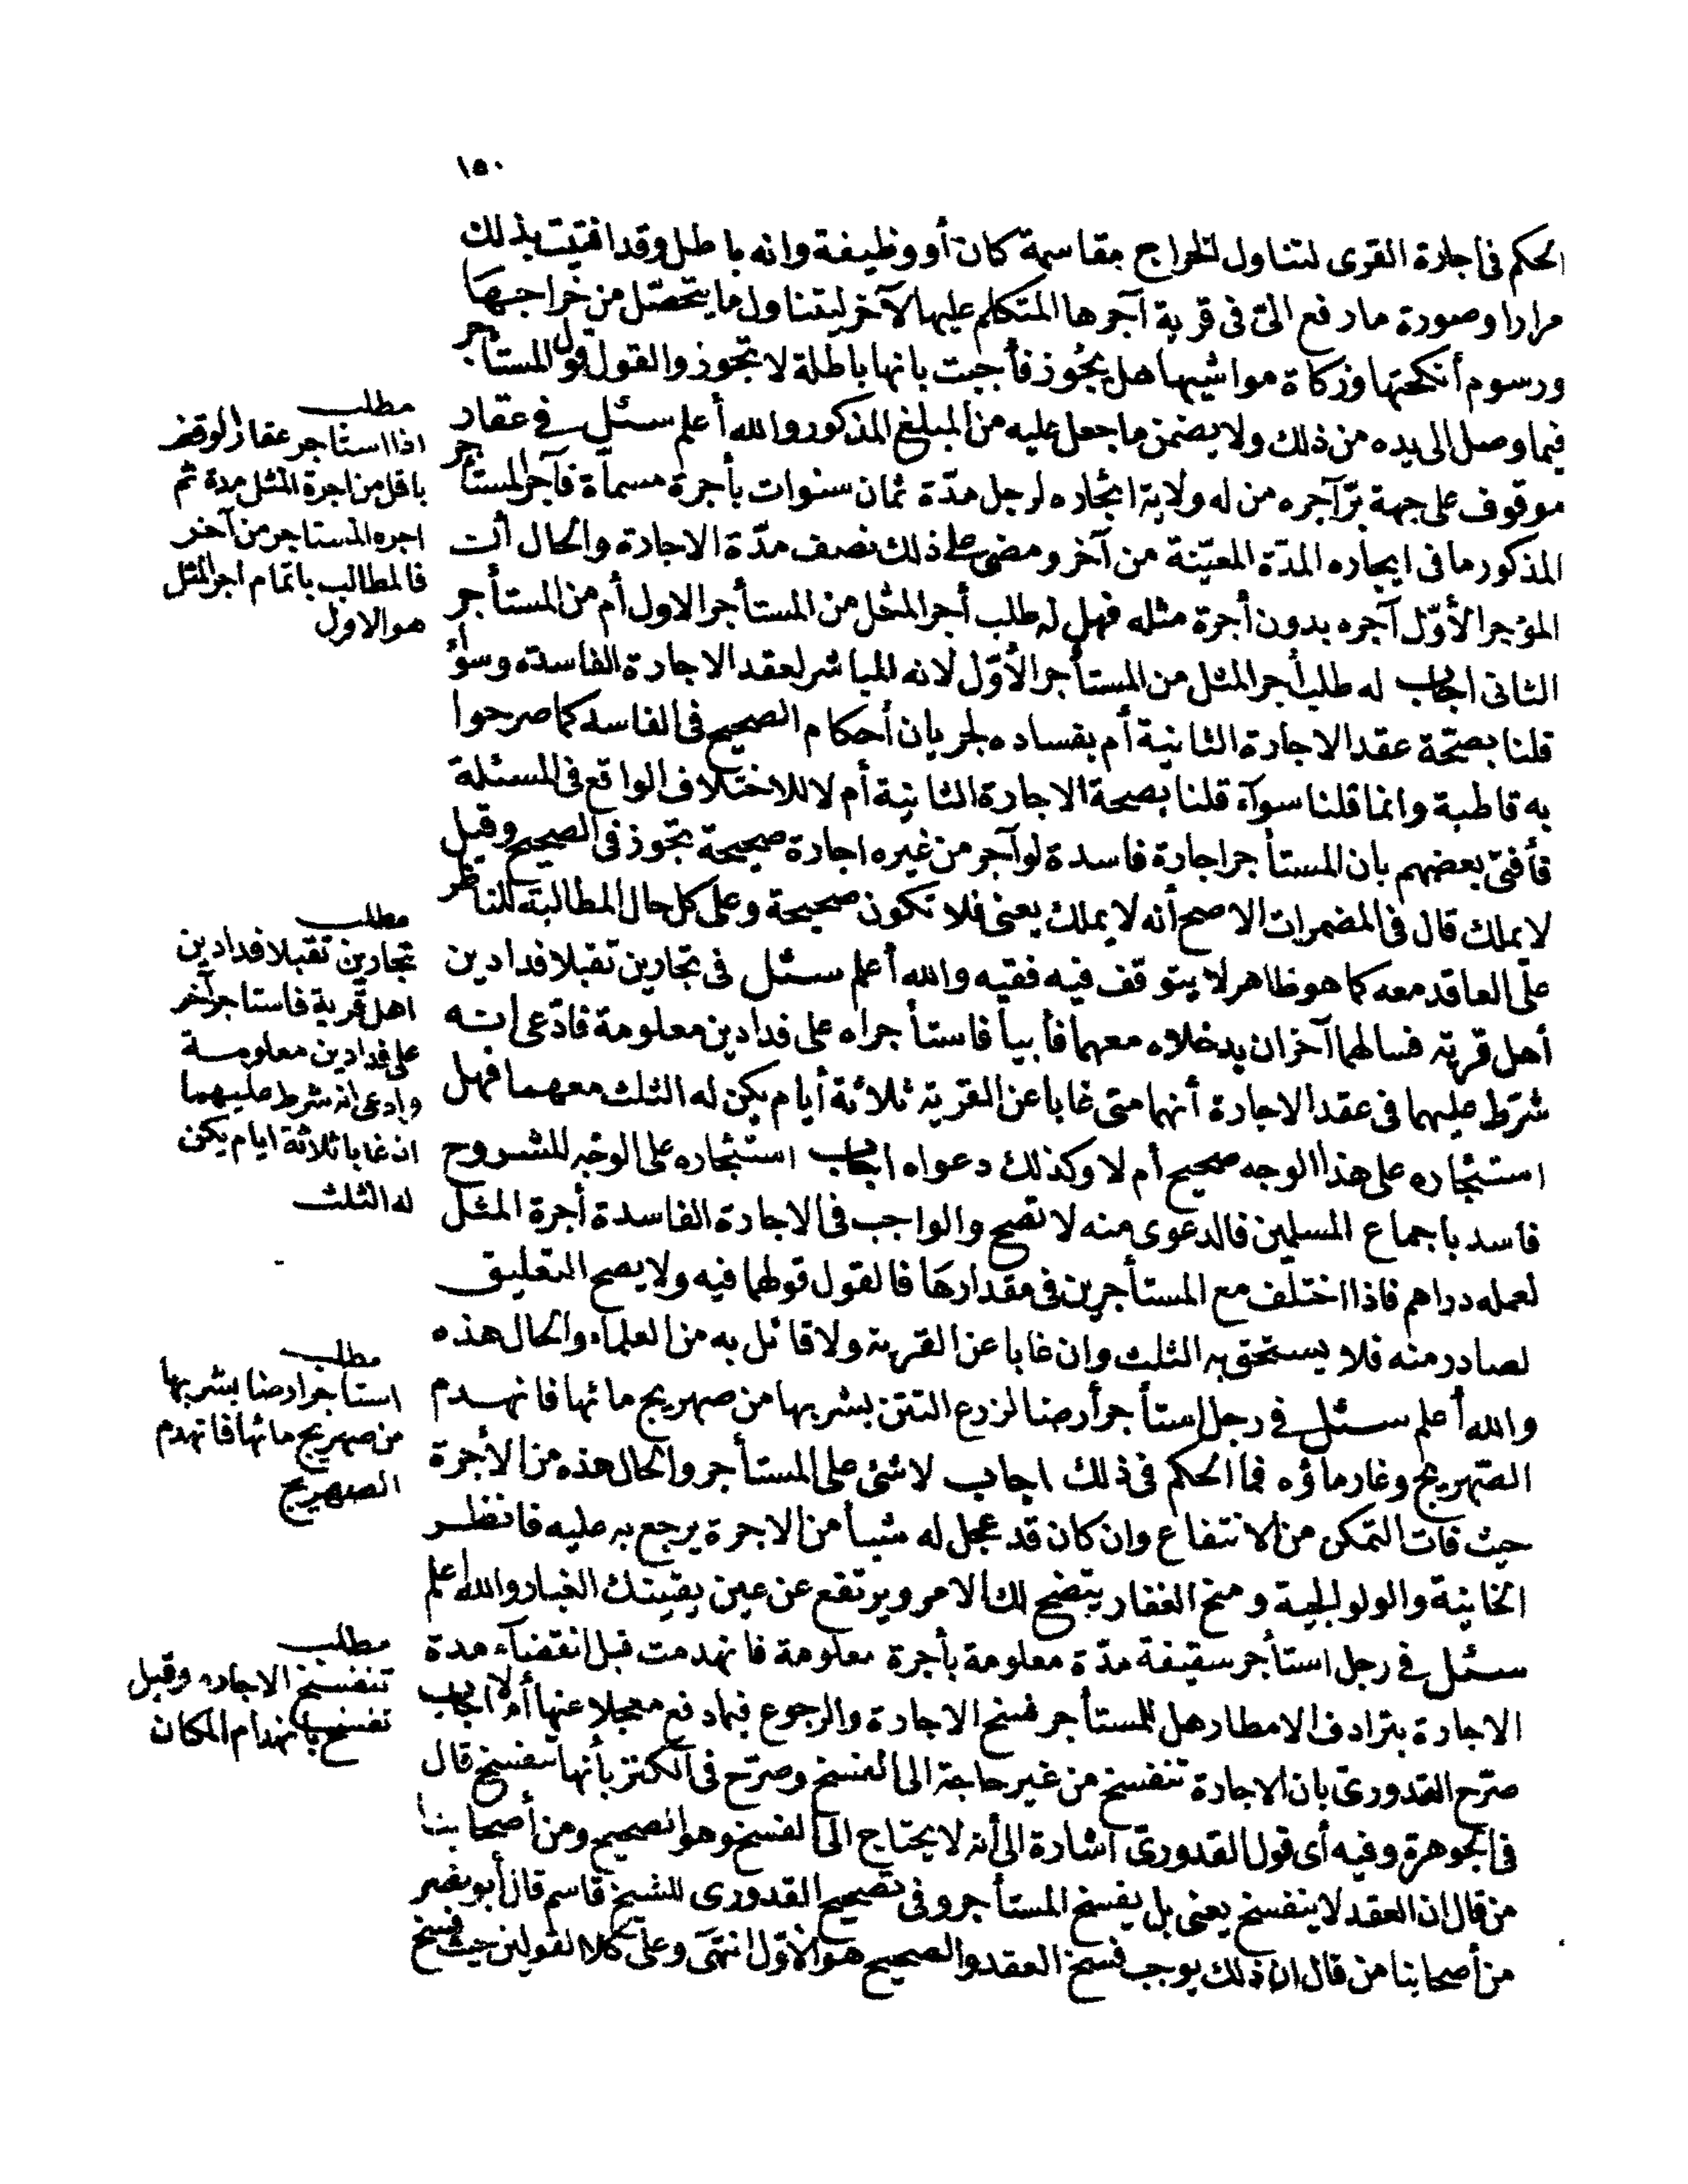 ١٥٠
الحكم فى اجارة القرى لتناول الخراج مقاسمة كان أو وظيفة وانه باطل وقد افتيت بذلك
مرارا وصورة ما رفع الىّ فى قرية آجرها المتكلم عليها لآخر ليتناول ما يتحصّل من خراجها
ورسوم أنكحتها وزكاة مواشيها هل يجُوز فأجبت بانها باطلة لا تجوز والقول قول المستأجر
فيما وصل الى يده من ذلك ولا يضمن ما جعل عليه من المبلغ المذكور والله أعلم سئل فى عقار
موقوف على جهة برّ آجره من له ولاية ايجاره لرجل مدّة ثمان سنوات بأجرة مسماّة فآجر المستأجر
المذكور ما فى ايجاره المدّة المعيّنة من آخر ومضى على ذلك نصف مدّة الاجارة والحال أن
المؤجر الأوّل آجره بدون أجرة مثله فهل له طلب أجر المثل من المستأجر الاول أم من المستأجر
الثانى اجاب له طلب أجر المثل من المستأجر الأوّل لانه المباشر لعقد الاجارة الفاسدة وسواء
قلنا بصحّة عقد الاجارة الثانية أم بفساده لجريان أحكام الصحيح فى الفاسد كما صرحوا
به قاطبة وانما قلنا سوآء قلنا بصحة الاجارة الثانية أم لا للاختلاف الواقع فى المسئلة
فأفتى بعضهم بان المستأجر اجارة فاسدة لو آجر من غيره اجارة صحيحة تجوز فى الصحيح وقيل
لا يملك قال فى المضمرات الاصح أنه لا يملك يعنى فلا تكون صحيحة وعلى كل حال المطالبة للناظر
على العاقد معه كما هو ظاهر لا يتوقف فيه فقيه والله أعلم سئل فى نجارين تقبلا فدادين
أهل قرية فسالهما آخر ان يدخلاه معهما فأبيا فاستأجراه على فدادين معلومة فادّعى انه
شرط عليهما فى عقد الاجارة أنهما متى غابا عن القرية ثلاثة أيام يكن له الثلث معهما فهل
استئجاره على هذا الوجه صحيح أم لا وكذلك دعواه اجاب استئجاره على الوجه المشروح
فاسد باجماع المسلمين فالدعوى منه لا تصح والواجب فى الاجارة الفاسدة أجرة المثل
لعمله دراهم فاذا اختلف مع المستأجرين فى مقدارها فالقول قولهما فيه ولا يصح التعليق
لصادر منه فلا يستحق به الثلث وان غابا عن القرية ولا قائل به من العلماء والحال هذه
والله أعلم سئل فى رجل استأجر أرضا لزرع التتن بشربها من صهريج مائها فانهدم
الصّهريج وغار ماؤه فما الحكم فى ذلك اجاب لا شئ على المستأجر والحال هذه من الأجرة
حيث فات التمكن من الانتفاع وان كان قد عجل له شيأ من الاجرة يرجع به عليه فانظر
الخانية والولوالجية ومنح الغفار يتضح لك الامر ويرتفع عن عين يقينك الغبار والله اعلم
سئل فى رجل استأجر سقيفة مدّة معلومة بأجرة معلومة فانهدمت قبل انقضآء مدة
الاجارة بترادف الامطار هل للمستأجر فسخ الاجارة والرجوع فيما دفع معجلا عنها أم لا اجاب
صرّح القدورىّ بان الاجارة تنفسخ من غير حاجة الى الفسخ وصرّح فى الكنز بأنها تنفسخ قال
فى الجوهرة وفيه أى قول القدورىّ اشارة الى أنه لا يحتاج الى الفسخ وهو الصحيح ومن أصحابنا
من قال ان العقد لا ينفسخ يعنى بل يفسخ المستأجر وفى تصحيح القدورى للشيخ قاسم قال أبو نصر
من أصحابنا من قال ان ذلك يوجب فسخ العقد والصحيح هو الأوّل انتهى وعلى كلا القولين حيث فسخ
مطلب
اذا استاجر عقار الوقف
باقل من اجرة المثل مدة ثم
اجره المستاجر من آخر
فالمطالب باتمام اجر المثل
هو الاول
مطلب
نجارين تقبلا فدادين
اهل قرية فاستاجرا آخر
على فدادين معلومة
وادعى انه شرط عليهما
ان غابا ثلاثة ايام يكن
له الثلث
مطلب
استاجر ارضا بشربها
من صهريج مائها فانهدم
الصهريج
مطلب
تنفسخ الاجاره وقيل
تفسخ بانهدام المكان